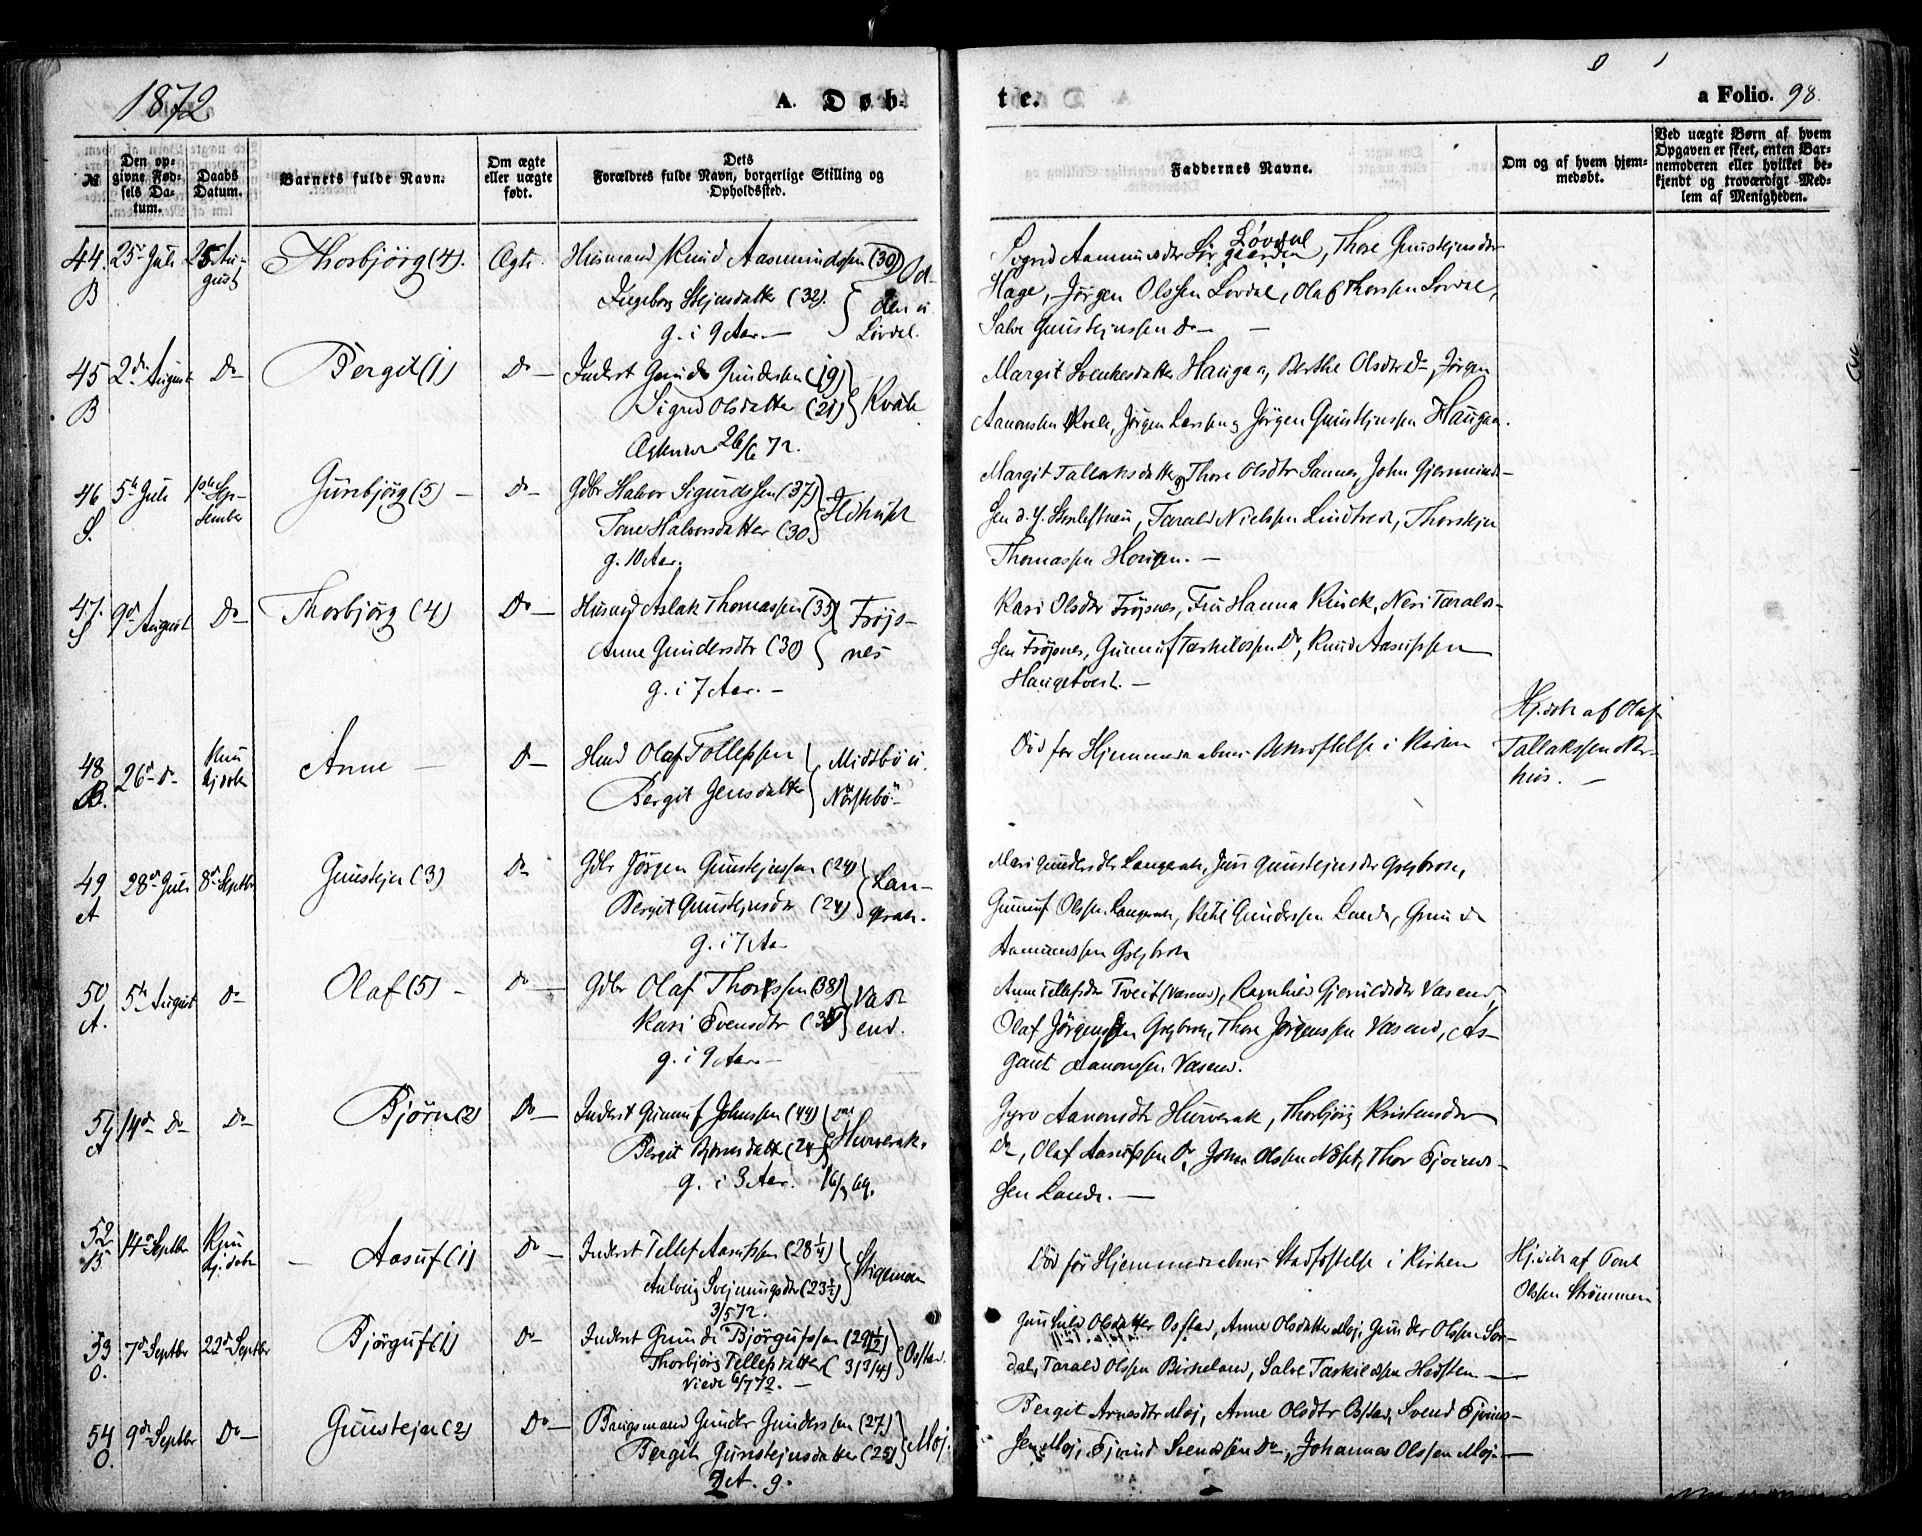 1872
A. Døb-
te.
a Folio. 98.
№
Den op-
givne Fød-
sels Da-
tum.
Daabs
Datum.
Barnets fulde Navn.
Om ægte
eller uægte
født.
Dets
Forældres fulde Navn, borgerlige Stilling og
Opholdssted.
Faddernes Navne.
Om og af hvem hjem-
medøbt.
Ved uægte Børn af hvem
Opgaven er skeet, enten Bar-
nemoderen eller hvilket be-
kjendt og troværdigt Med-
lem af Menigheden.
44. 25de Juli 25 Au- Thorbjörg (4). Ægte. Husmand Knud Aasmundssen (39)
B gust Ingeborg Stejnsdatter (32).
g. i 9 Aar. — Løvdal.
Løvdal
Sigrid Aanunds­dtr Thore Gunstejnsdtr
Hage, Jörgen Olssen Lovdal, Olaf Thorssen Lovdal,
Salve Gunstejnssen Do —
45 2den August Do Bergit (1) Do — Inderst Gunder Gunderssen (19)
B Sigrid Olsdatter (21) Kvale
26/6 72.
Margit Svenkesdatter Haugaa, Berthe Olsdtr Do, Jörgen
Aanonssen Kvale, Jörgen Larssen og Jörgen Gunstejnssen Haugaa.
46 5te Juli 1ste Sep- Gunbjörg (5) — Do — Gdbr Halvor Sigurdssen (37)
S. tember Tone Halvorsdatter (30
g. 10 Aar.
Margit Tallaksdatter, Thore Olsdtr Sannes, John Gjermunds-
sen Tarald Nielssen Lindtved, Thorstejn
Thomassen Horigen. —
47. 9de August Do Thorbjörg (4) Do — Husmd Aslak Thomassen (35) Fröjs-
S Anne Gundersdtr (30) nes
g. i 7 Aar. —
Kari Olsdtr Fröjsnes, Fru Hanna Kinck, Neri Tarald-
sen Fröjsnes, Gunnuf Terkildssen Do, Knud Aasufssen
Haugetveit. —
48 26de do Kun Anne — Do — Hmd Olaf Tollefssen Midtbö u.
B. hj.döbt Bergit Jensdatter Norstebö
Död för Hjemmedaabens Bekræftelse i Kirken
Hj.döbt af Olaf
Tallakssen
hus. —
49 28de Juli 8de Septbr Gunstejn (3) Do Gdbr Jörgen Gunstejnssen (24) Lan-
A Bergit Gunstejnsdtr (24) gerak.
g. i 7 Aar
Mari Gundersdtr Langerak, Gunstejnsdtr Grejbrok,
Gunnuf Olssen Langerak, Ketil Gunderssen Lande, Gunder
Aanundssen Grejbrok
50 5te August Do Olaf (5) — Do Gdbr Olaf Thorssen (38) Vas-
A. Kari Evensdtr end.
g. i 9 Aar. —
Anne Tellefsdtr Tveit (Vasend), Ragnhild Gjeruldsdtr Vasend,
Olaf Jörgenssen Grejbrok, Thore Jörgenssen Vasend, As-
gaut Aanonssen Vasend.
51 14de Do Do Björn (2) Do — Inderst Gunnuf Johnssen (44) Hurverak.
A Bergit Björnsdatter (24)
g. i 3 Aar. 16/3 69.
Gyro Aanonsdtr Hurverak, Thorbjörg Kristensdtr
Do, Olaf Aasufssen Do, John Olssen Næset, Thor Ejvinds-
sen Lande. —
52 14de Septbr Kun Aasuf (1) Do — Inderst Tellef Aasufssen (28 1/4) Stigemoen
B hj.döbt Anlaug Svejnungsdtr (23 1/2)
3/5 72.
Död för Hjemmedaabens Stadfæstelse i Kirken
Hj.döbt af Tone
Olssen Strömmen
53 7de Septbr 22de Septbr Björguf (1) Do Inderst Gunder Björgufssen (29 1/2) Osstad.
O. Thorbjörg Tellefsdatter (31 3/4)
Viede 6/7 72. —
Gunhild Olsdatter Osstad, Anne Olsdatter Moj, Gunder Olssen Sor-
dal, Tarald Olssen Birkeland, Salve Terkildssen Hodsten —
54 9de Septbr Do — Gunstejn (2) Do — Brugsmand Gunder Gunderssen (27) Moj.
O. Bergit Gunstejnsdatter (25)
2 A. g.
Bergit Arnesdtr Moj, Anne Olsdtr Osstad, Svend Ejvinds-
sen Moj, Ejvind Svendssen Do, Johannes Olssen Moj. —